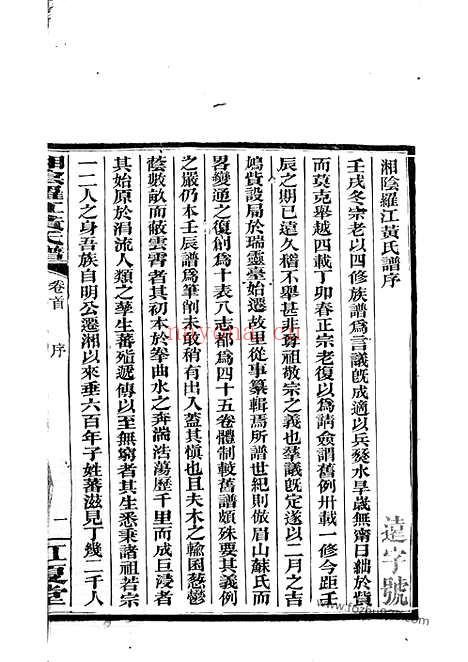 湘陰羅江黃氏譜序
壬戌冬宗老以四修族譜爲言議旣成適以兵燹水旱歲無甯日絀於貲
而莫克舉越四載丁卯春正宗老復以爲請僉謂舊例卅載一修今距壬
辰之期已遠久稽不舉甚非尊祖敬宗之義也羣議旣定遂以二月之吉
鳩貲設局於瑞靈臺始遷故里從事纂輯焉所譜世紀則倣眉山蘇氏而
畧變通之復創爲十表八志都爲四十五卷體制較舊譜頗殊要其義例
之嚴仍本壬辰譜爲筆削未敢稍有出入蓋其愼也且夫木之輪囷葱鬱
蔭數畝而蔽雲霄者其初本於拳曲水之奔湍浩蕩歷千里而成巨浸者
其始原於涓流人類之孳生蕃殖遞傳以至無窮者其生悉秉諸祖若宗
一二人之身吾族自明公遷湘以來垂六百年子姓蕃滋見丁幾二千人
湘陰羅江黃氏譜
卷首
序
一
江夏堂
遠字號
nayona.cn
www.fozhu920.com